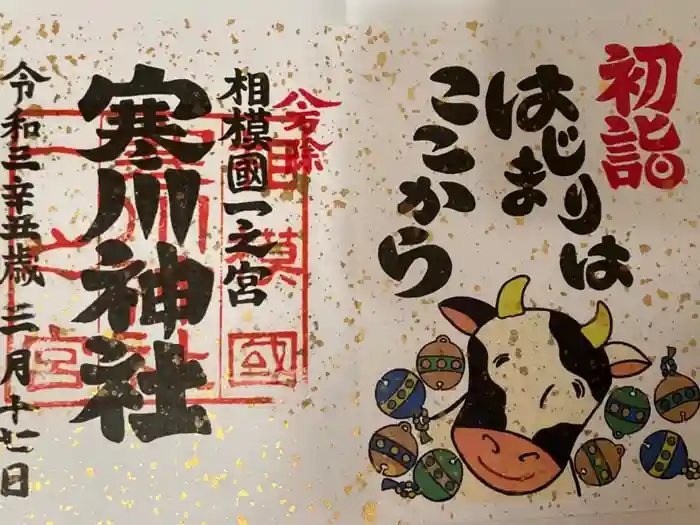 初詣
はじまりは
ここから
八方除
相模國一之宮
寒川神社
令和三辛丑歳 三月十七日
相模國一之宮